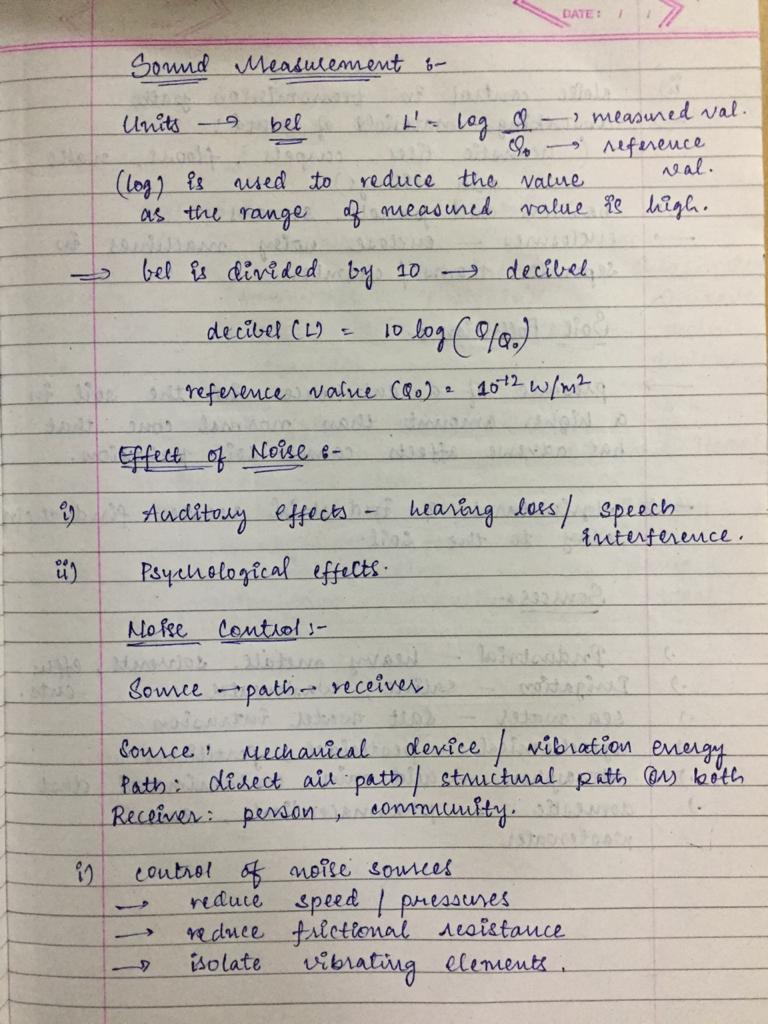 DATE: / /
Sound Measurement :-
Units → bel L' = log Q → measured val.
Q₀ → reference val.
(log) is used to reduce the value
as the range of measured value is high.
⇒ bel is divided by 10 → decibel
decibel (L) = 10 log (Q/Q₀)
reference value (Q₀) = 10⁻¹² W/m²
Effect of Noise :-
i) Auditory effects - hearing loss / speech
interference.
ii) Psychological effects.
Noise Control :-
Source → path → receiver
Source : Mechanical device / vibration energy
Path : direct air path / structural path (or) both
Receiver : person , community.
i) control of noise sources
→ reduce speed / pressures
→ reduce frictional resistance
→ isolate vibrating elements.